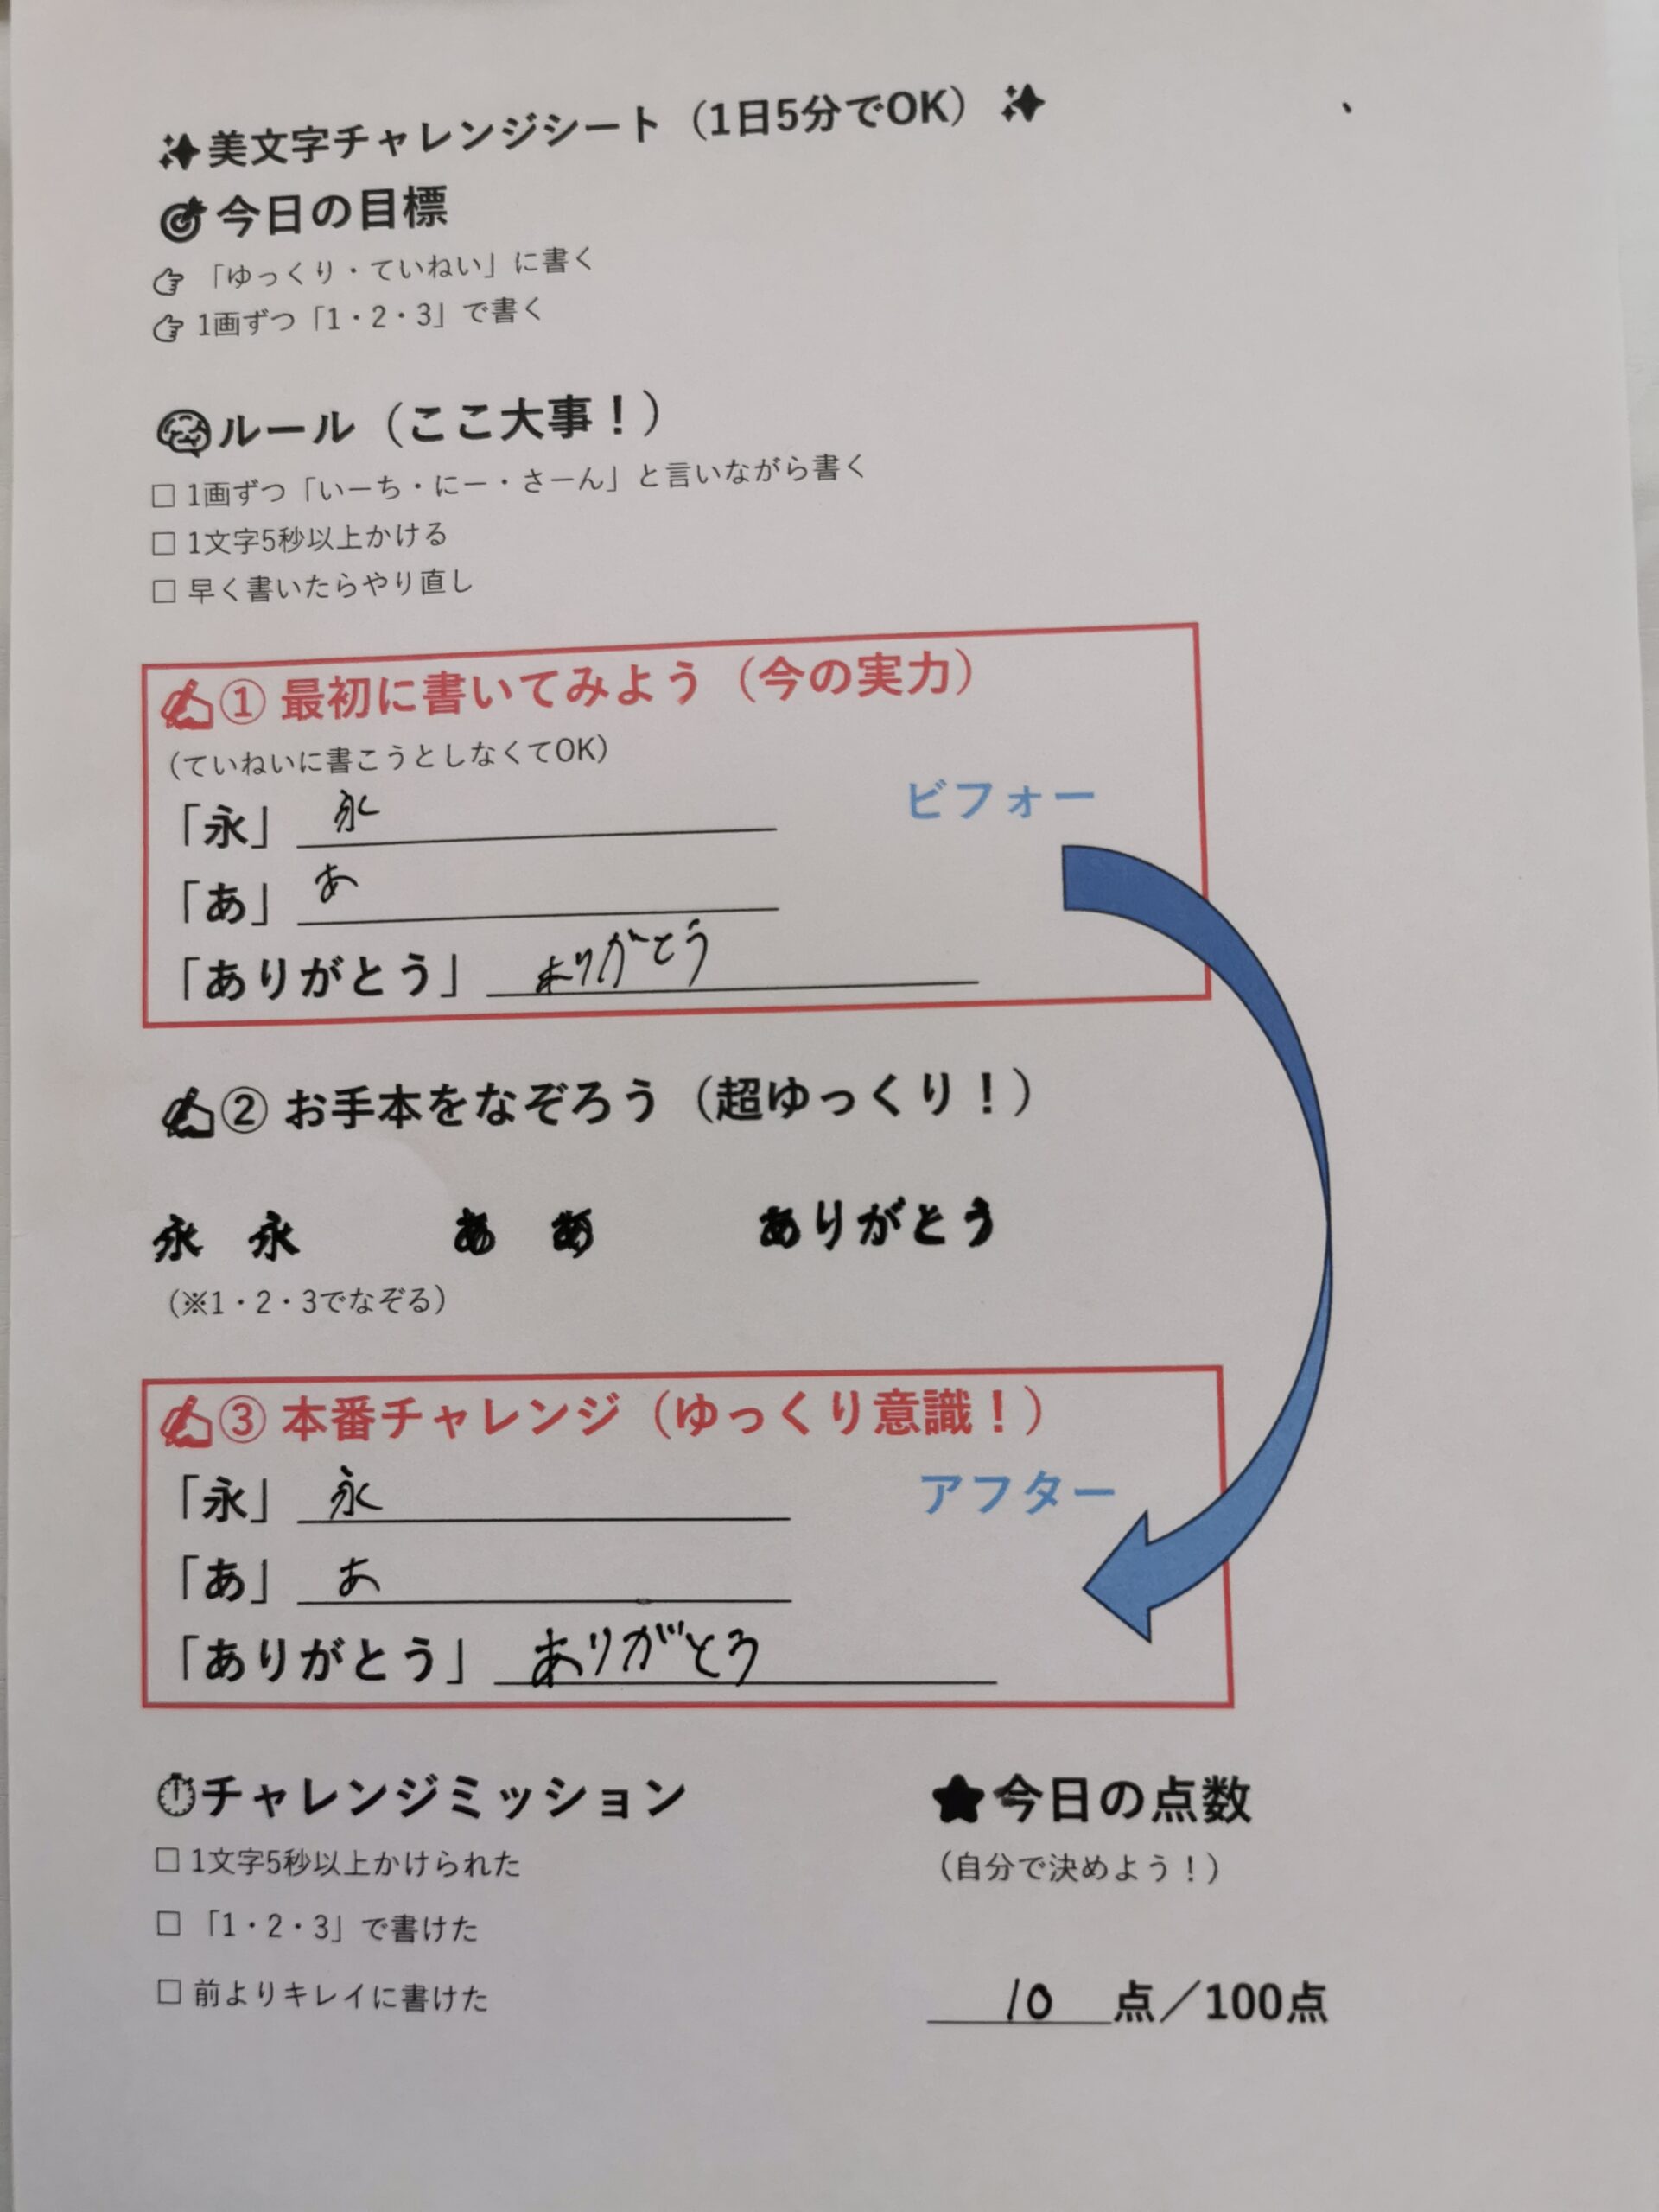 ✨美文字チャレンジシート（1日5分でOK）✨
🎯今日の目標
👉「ゆっくり・ていねい」に書く
👉1画ずつ「1・2・3」で書く
ルール（ここ大事！）
□ 1画ずつ「いーち・にー・さーん」と言いながら書く
□ 1文字5秒以上かける
□ 早く書いたらやり直し
✍① 最初に書いてみよう（今の実力）
（ていねいに書こうとしなくてOK）
ビフォー
「永」 永
「あ」 あ
「ありがとう」 ありがとう
✍② お手本をなぞろう（超ゆっくり！）
永 永 あ あ ありがとう
（※1・2・3でなぞる）
✍③ 本番チャレンジ（ゆっくり意識！）
「永」 永
アフター
「あ」 あ
「ありがとう」 ありがとう
⏱チャレンジミッション
□ 1文字5秒以上かけられた
□ 「1・2・3」で書けた
□ 前よりキレイに書けた
★今日の点数
（自分で決めよう！）
10 点／100点